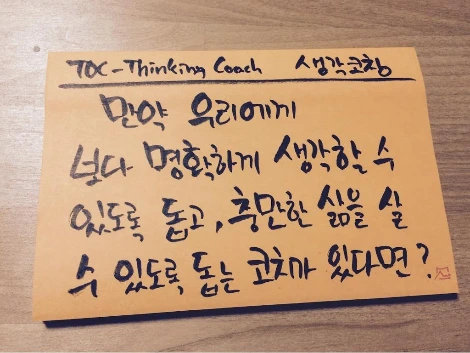 TOC-Thinking Coach 생각코칭
만약 우리에게
보다 명확하게 생각할 수
있도록 돕고, 충만한 삶을 살
수 있도록 돕는 코치가 있다면?